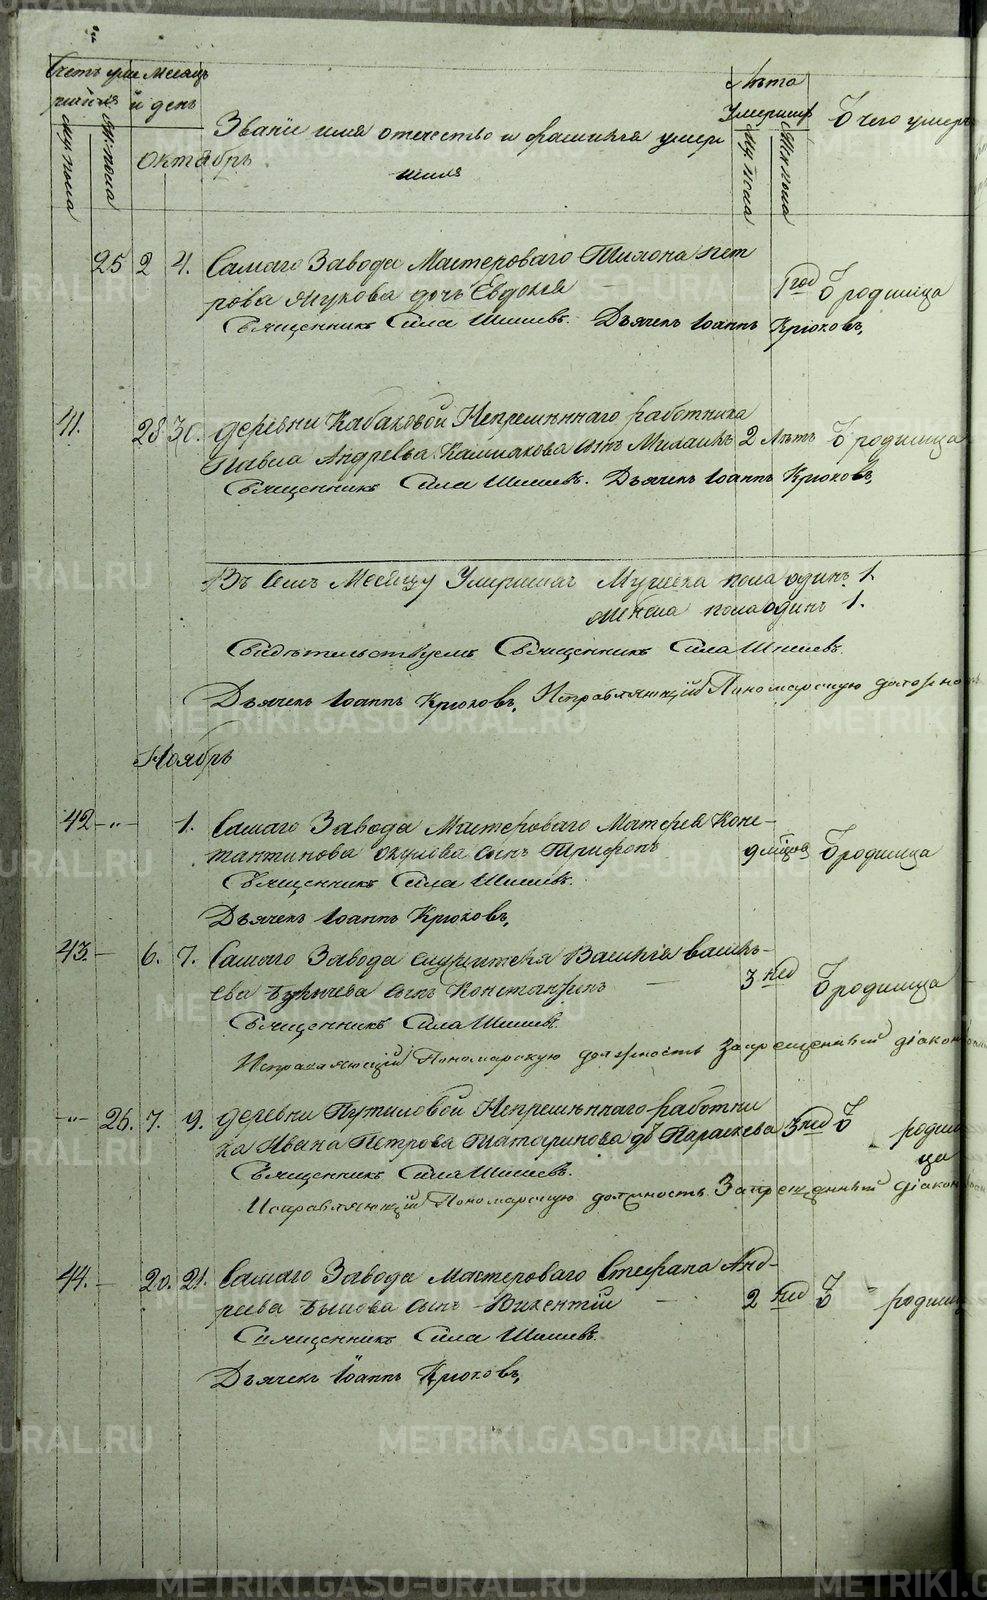 Счетъ уме месяцъ
ршихъ и день
му: пола
же: пола
Званiе имя отечество и фамилiя умер
шихъ
Лѣта
Умершихъ
Му: пола
Же: пола
Ѿ чего умеръ
Октябрь
25 2 4. Самаго Завода Мастероваго Филиона Пет
рова Жукова дочь Евдокiя 1 год Ѿ родимца
Священникъ Сила Шишевъ. Дьячекъ Iоаннъ Крюковъ,
41. 28 30. деревни Кабаковой Непремѣннаго работника
Павла Андреева Калмакова сынъ Михаилъ 2 Лѣтъ Ѿ родимца
Священникъ Сила Шишевъ. Дьячекъ Iоаннъ Крюковъ,
Въ Семъ Месяцу Умершихъ Мужеска пола одинъ 1.
женска пола одинъ 1.
Свидѣтельствуемъ Священникъ Сила Шишевъ.
Дьячекъ Iоаннъ Крюковъ, Исправляющiй Пономарскую должно
Ноябрь
42 -"- 1. Самаго Завода Мастероваго Матфея Конс-
тантинова Окулова сынъ Трифонъ 9 мцовъ Ѿ родимца
Священникъ Сила Шишевъ.
Дьячекъ Iоаннъ Крюковъ,
43. - 6. 7. Самаго Завода служителя Василiя Василь-
ева сынъ Константинъ 3 нед Ѿ родимца
Священникъ Сила Шишевъ.
Исправляющiй Пономарскую должность Запрещенный дiаконъ
-"- 26. 7. 9. деревни Путиловой Непремѣннаго работни
ка Ивана Петрова Татаринова до Параскева 3 нед Ѿ родим
ца
Священникъ Сила Шишевъ.
Исправляющiй Пономарскую должность Запрещенный дiаконъ
44. - 20. 21. Самаго Завода Мастероваго Стефана Анд-
реева сынъ Викентiй 2 нед Ѿ родимц
Священникъ Сила Шишевъ.
Дьячекъ Iоаннъ Крюковъ,
METRIKI.GASO-URAL.RU